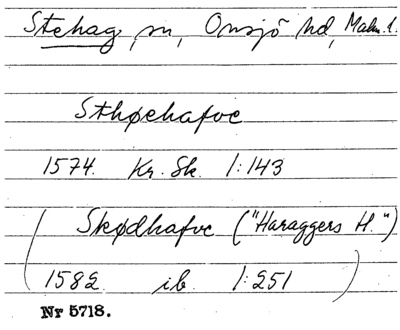 Stehag, sn, Onsjö hd, Malm. l.
Sthøehafve
1574. Kr. Sk. 1:143
(Skødhafve ("Haraggers H.")
1582 ib 1:251)
Nr 5718.